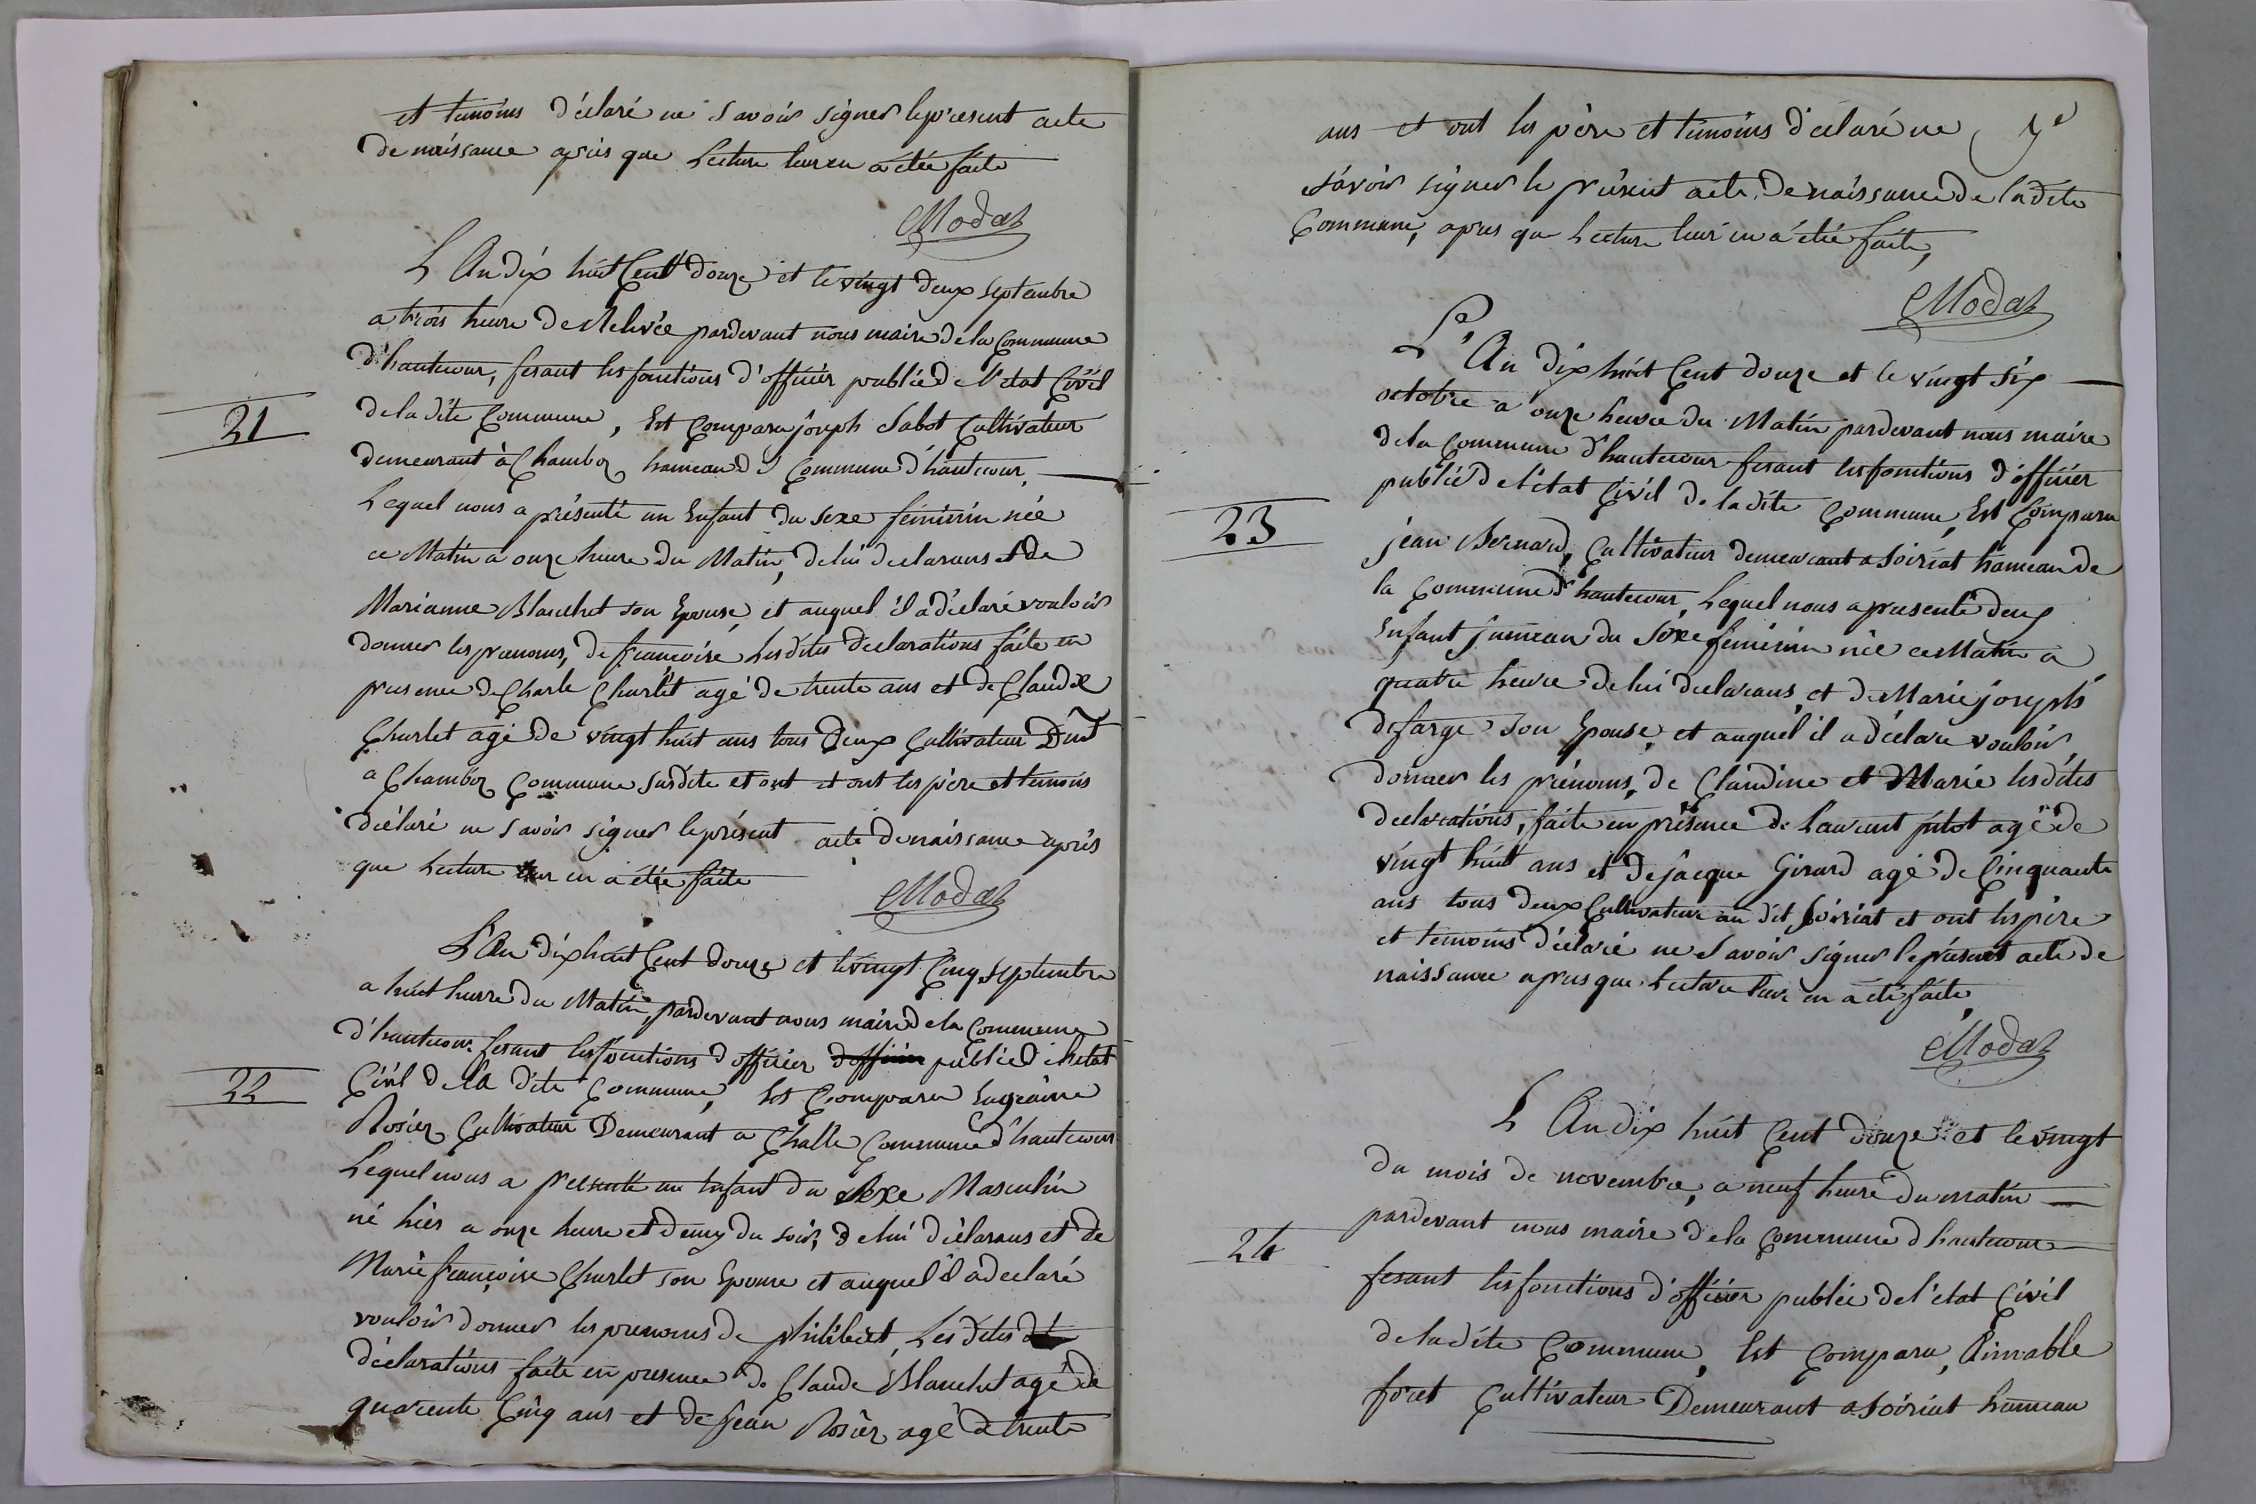 et temoins déclaré ne savoir signer le présent acte
de naissance après que Lecture leur en a étée faite
Modaz
L An dix huit Cent douze et le vingt deux septembre
a trois heure de Relevée pardevant nous maire de la Commune
d'hautecour, fesant les fonctions d'officier public de l'etat Civil
21
de la dite Commune, Est Comparu joseph Sabot Cultivateur
demeurant à Chambo hameau de Commune d'hautecour,
Lequel nous a présenté un Enfant du sexe féminin née
ce Matin a onze heure du Matin, de lui declarans et de
Marianne Blanchet son Epouse, et auquel il a déclaré vouloir
donner les prenoms, de françoise Lesdites declarations faite en
presence de Charle Charlet agé de trente ans et de Claude
Charlet agé de vingt huit ans tous deux Cultivateur Dmt
a Chamboz Commune Susdite et ont et ont les père et temoins
déclaré ne savoir signer le présent acte de naissance après
que Lecture leur en a étée faite
Modaz
L'An dix huit Cent douze et le vingt Cinq Septembre
a huit heure du Matin, pardevant nous maire de la Commune
d'hautecour fesant les fonctions d'officier d'officier public de l'etat
22
Civil de la dite Commune, Est Comparu
Rosier Cultivateur Demeurant a Challe Commune d'hautecour
Lequel nous a presenté un Enfant du sexe Masculin
né hier a onze heure et demy du soir, de lui déclarans et de
Marie françoise Charlet son Epouse et auquel il a declaré
vouloir donner les prenoms de philibert, Les dites
déclarations faite en presence de Claude Blanchet agé de
quarente Cinq ans et de Jean Rosier agé de trente
ans et ont les père et témoins déclaré ne
savoir signer le présent acte de naissance de la dite
Commune, apres que Lecture leur en a étée faite,
Modaz
L'An dix huit Cent douze et le vingt six
octobre a onze heure du Matin pardevant nous maire
de la Commune d'hautecour fesant les fonctions d'officier
public de l'état Civil de la dite Commune, Est Comparu
23
jean Bernard, Cultivateur demeurant a Soiriat hameau de
la Commune d'hautecour, Lequel nous a presenté deux
Enfant jumeau du séxe féminin née ce Matin a
quatre heure de lui declarans, et de Marie joseph
defarge son Epouse, et auquel il a déclare vouloir
donner les prénoms, de Claudine et Marie les dites
declarations, faite en présence de Laurent pitot agé de
vingt huit ans et de Jacque Girard agé de Cinquante
ans tous deux Cultivateur au dit Soiriat et ont les père
et temoins déclaré ne Savoir signer le présent acte de
naissance apres que Lecture leur en a été faite,
Modaz
L An dix huit Cent douze et le vingt
du mois de novembre, a neuf heure du matin
pardevant nous maire de la Commune d hautecour
24
fesant les fonctions d'officier public de l'état Civil
de la dite Commune, Est Comparu, Aimable
foret Cultivateur Demeurant a Soiriat hameau